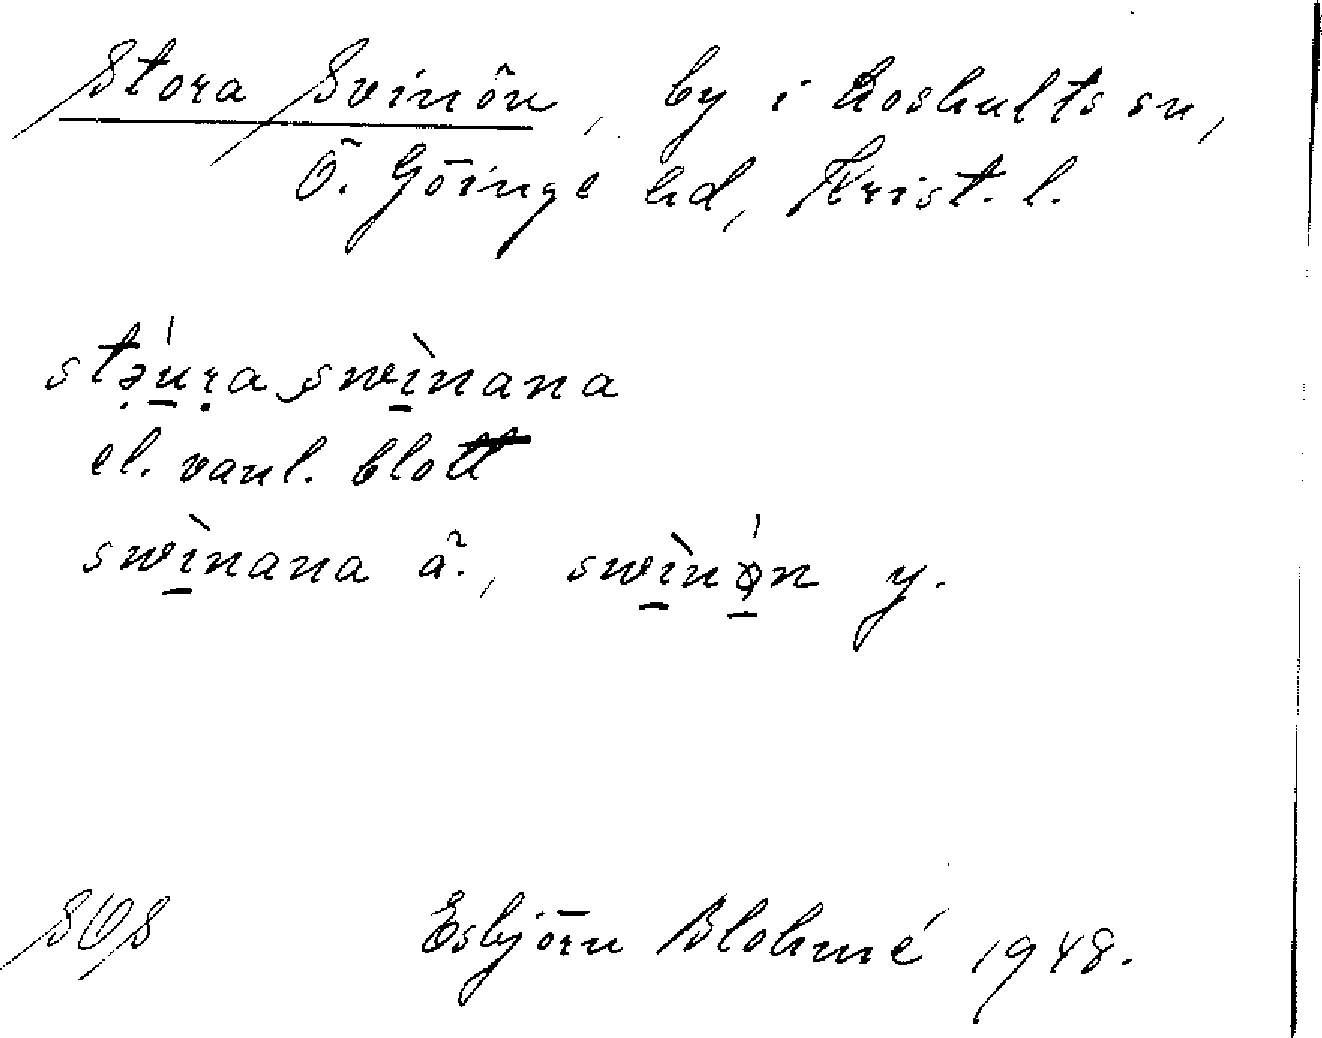 Stora Svinön, by i Loshults sn,
Ö. Göinge hd, Krist. l.
stə̣́u̱ṛa swì̱nana
el. vanl. blott
swì̱nana ä., swì̱nǿ̱n y.
SOS Esbjörn Blohmé 1948.